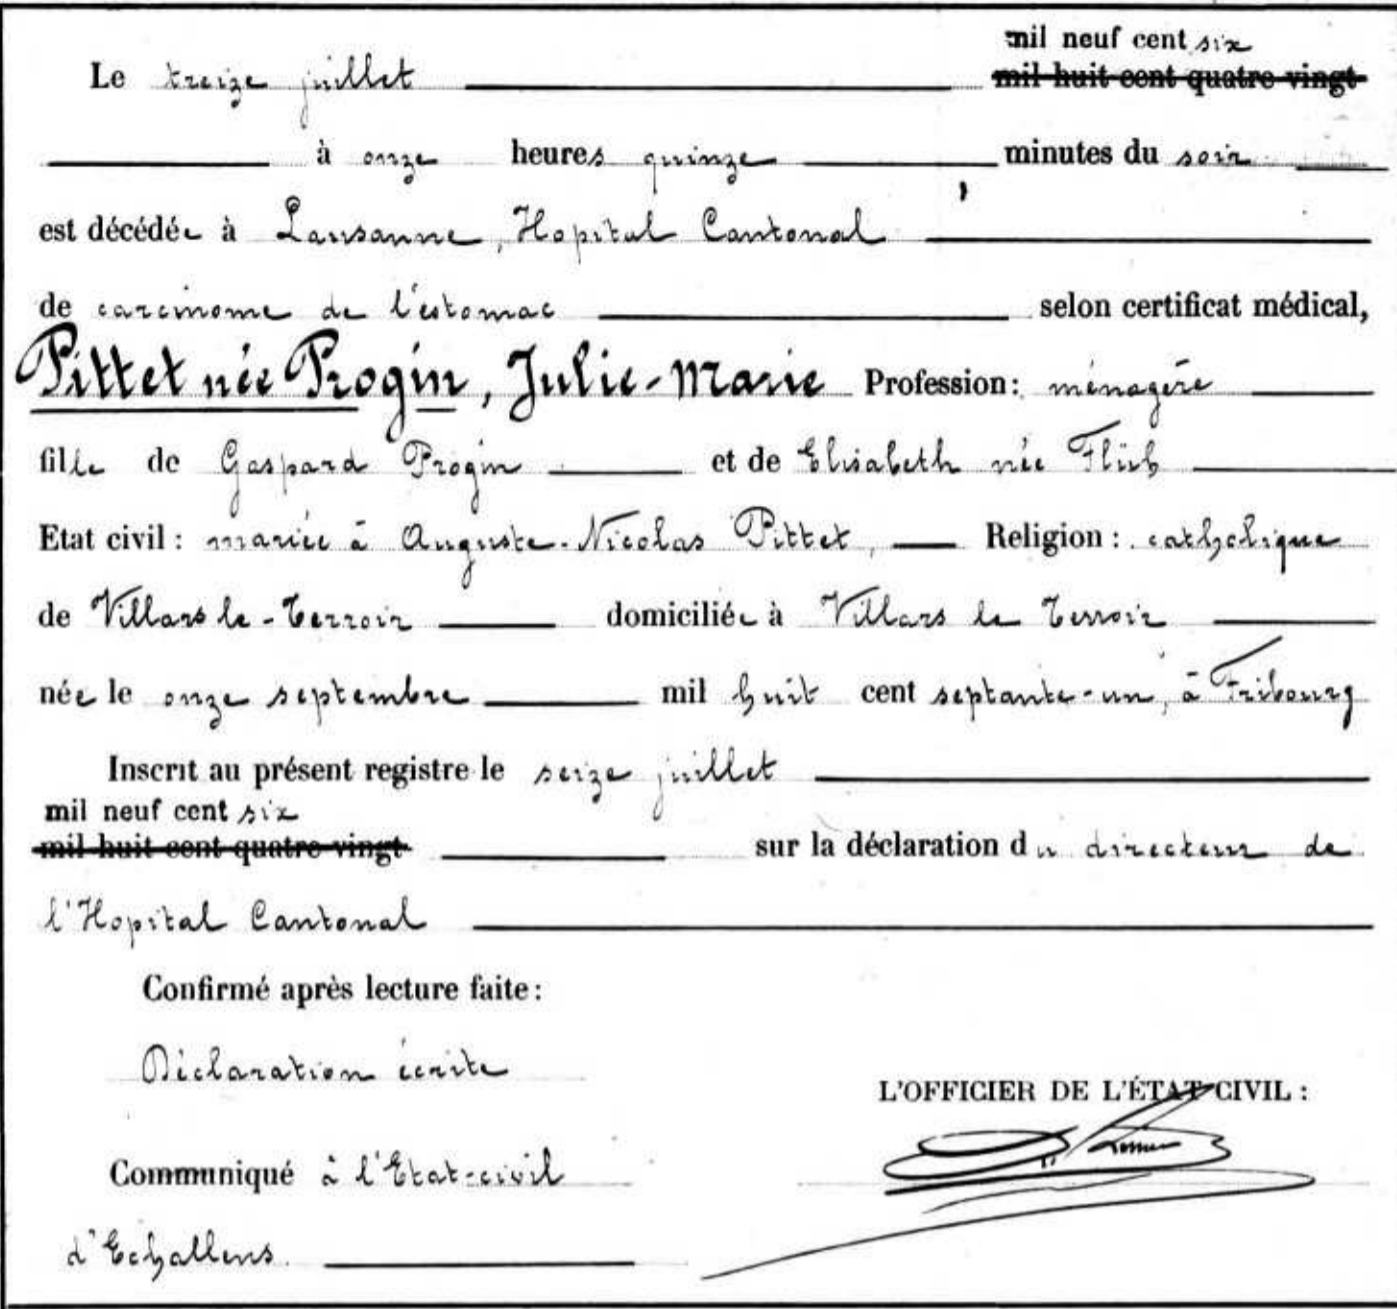 mil neuf cent six
Le treize juillet mil huit cent quatre-vingt
à onze heures quinze minutes du soir
est décédée à Lausanne, Hopital Cantonal
de carcinome de l'estomac selon certificat médical,
Pittet née Progin, Julie-Marie Profession: ménagère
fille de Gaspard Progin et de Elisabeth née Flüb
Etat civil: mariée à Auguste-Nicolas Pittet, Religion: catholique
de Villars le-Terroir domiciliée à Villars le Terroir
née le onze septembre mil huit cent septante-un, à Fribourg
Inscrit au présent registre le seize juillet
mil neuf cent six
mil huit cent quatre-vingt sur la déclaration du directeur de
l'Hopital Cantonal
Confirmé après lecture faite:
Déclaration écrite
L'OFFICIER DE L'ÉTAT CIVIL:
Communiqué à l'Etat-civil
d'Echallens.